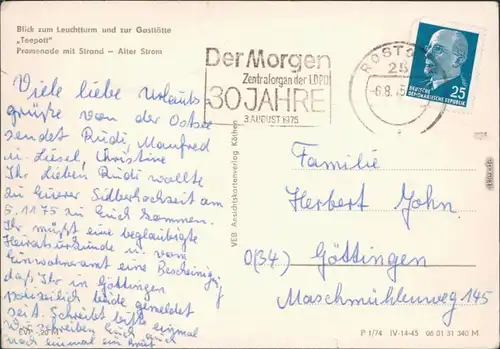 Blick zum Leuchtturm und zur Gaststätte
„Teepott"
Promenade mit Strand – Alter Strom
Der Morgen
Zentralorgan der LDPD
30 JAHRE
3. AUGUST 1975
ROSTO
25
-6.8.
DEUTSCHE
DEMOKRATISCHE REPUBLIK
25
Viele liebe Urlaubs-
grüße von der Ostsee
sendet Rudi, Manfred
u. Liesel, Christine
Ihr Lieben Rudi wollte
zu Eurer Silberhochzeit am
5.11.75 zu Euch kommen.
Ihr müßt eine beglaubigte
Heiratsurkunde u. vom
Einwohneramt eine Bescheinigung
daß Ihr in Göttingen
polizeilich beide gemeldet
seit. Schreibt bitte einmal
Wir schreiben Euch auch
noch einmal ein Brief
VEB Ansichtskartenverlag Köthen
Familie
Herbert John.
0(34) Göttingen
Maschmühlenweg 145
P 1/74 IV-14-45 06 01 31 340 M